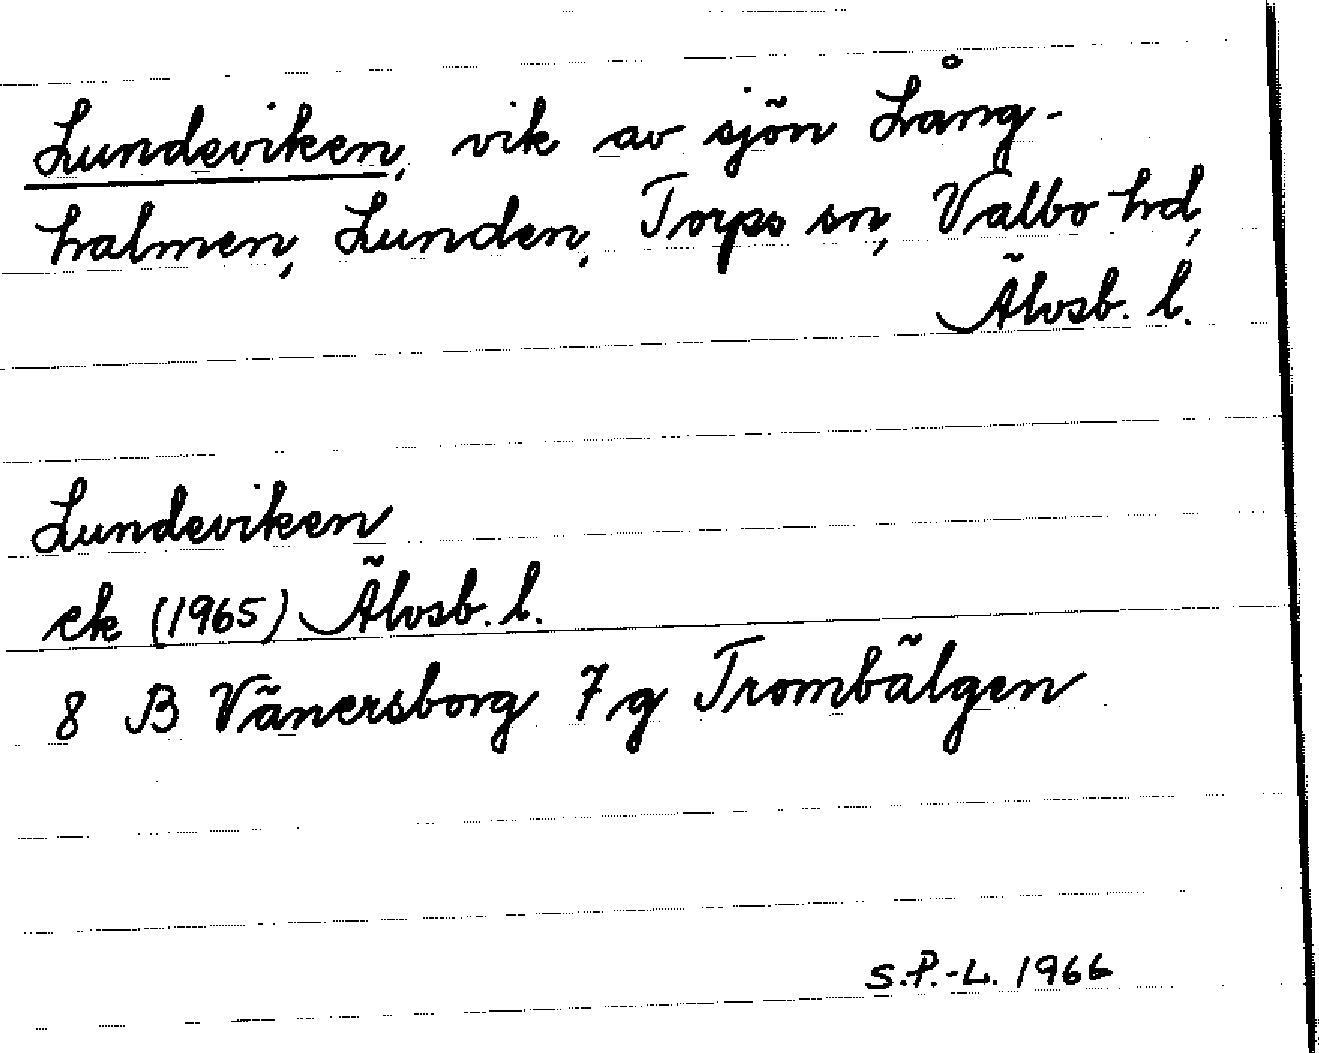 Lundeviken, vik av sjön Lång-
halmen, Lunden, Torps sn, Valbo hd,
Älvsb. l.
Lundeviken
ek (1965) Älvsb. l.
8 B Vänersborg 7 g Trombälgen
S.P.-L. 1966